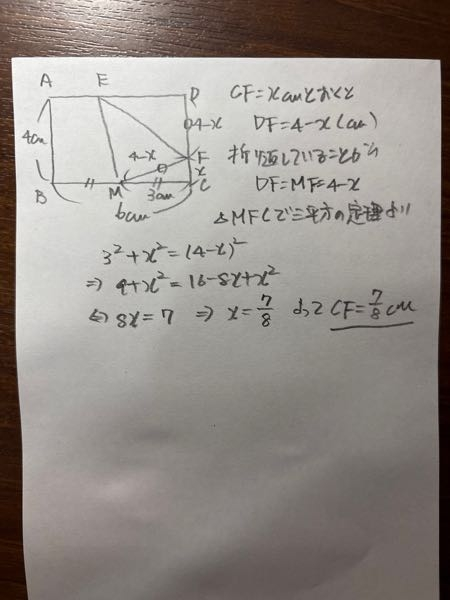 A E D
4cm
4-x
O4-x
F
x
B M 3cm C
6cm
CF=xcmとおくと
DF=4-x(cm)
折り返していることから
DF=MF=4-x
△MFCで三平方の定理より
3²+x²=(4-x)²
⇒ 9+x²=16-8x+x²
⇔ 8x=7 ⇒ x=7/8 よって CF=7/8cm